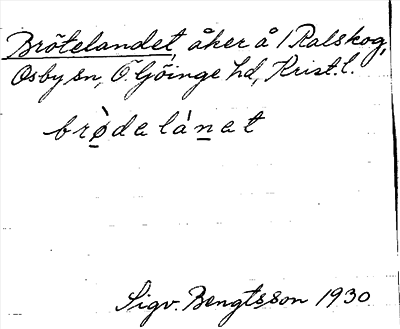 Brötelandet, åker å 1 Ralskog,
Osby sn, Ö. Göinge hd, Krist. l.
brò̲de lán̲et
Sigv. Bengtsson 1930